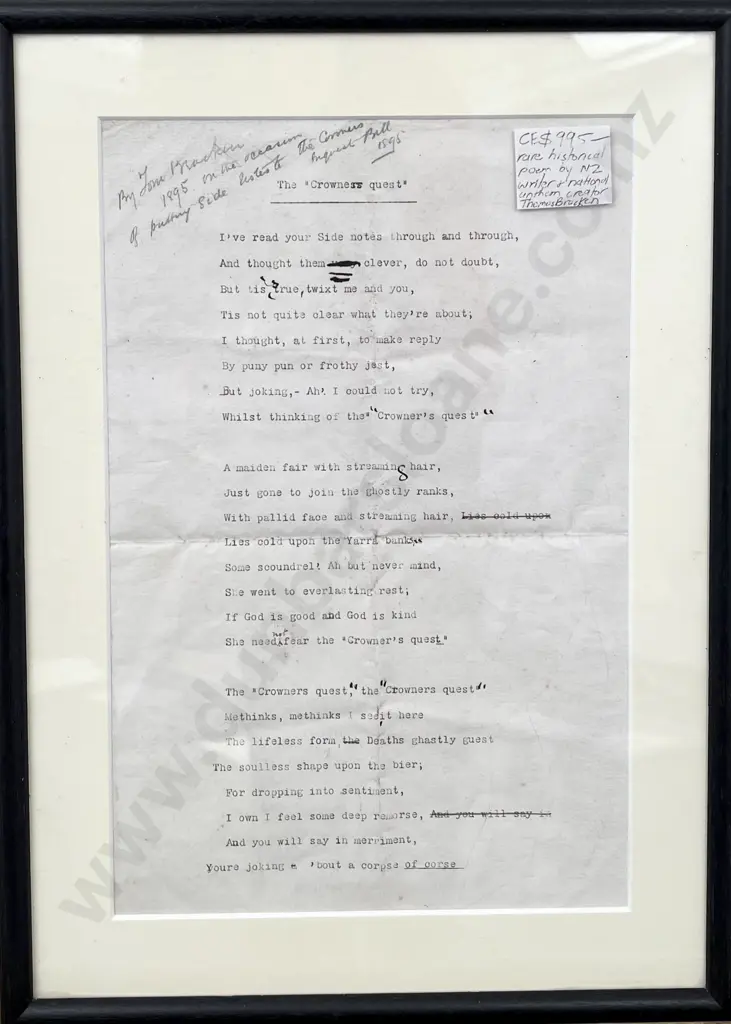 By Tom Bracken
1895 on the occasion
of putting Side Notes to the Coroners
Inquest Bill
1895
CE$995—
rare historical
poem by NZ
writer & national
anthem creator
Thomas Bracken
The "Crowners quest"
I've read your Side notes through and through,
And thought them clever, do not doubt,
But tis true, twixt me and you,
Tis not quite clear what they're about;
I thought, at first, to make reply
By puny pun or frothy jest,
But joking,- Ah! I could not try,
Whilst thinking of the "Crowner's quest"
A maiden fair with streaming hair,
Just gone to join the ghostly ranks,
With pallid face and streaming hair, Lies cold upon
Lies cold upon the Yarra banks
Some scoundrel! Ah but never mind,
She went to everlasting rest;
If God is good and God is kind
She need not fear the "Crowner's quest"
The "Crowners quest", the "Crowners quest"
Methinks, methinks I see it here
The lifeless form, the Deaths ghastly guest
The soulless shape upon the bier;
For dropping into sentiment,
I own I feel some deep remorse, And you will say in
And you will say in merriment,
Youre joking 'bout a corpse of corse
www.dunbarsloane.co.nz